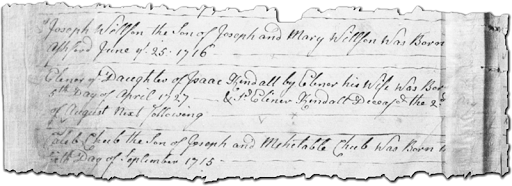 Joseph Willson the Son of Joseph and Mary Willson Was Born
June yᵉ 25. 1716
Elener yᵉ Daughter of Isaac Kendall by Elener his Wife Was Bor
5th Day of April 1727 & sᵈ Elener Kendall Deceasᵈ the 2
of August next following
Caleb Chub the Son of Joseph and Mehetable Chub Was Born
Day of September 1715